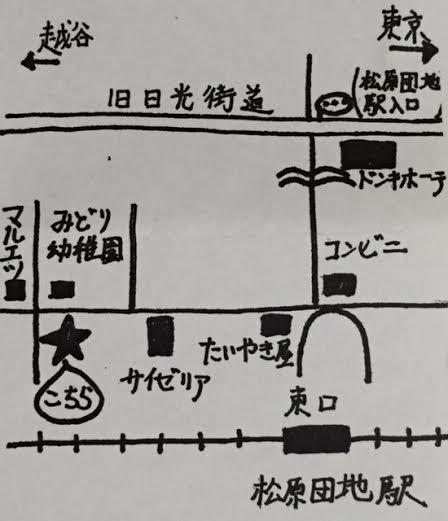 越谷
東京
旧日光街道
松原団地
駅入口
ドンキホーテ
マルエツ
みどり
幼稚園
コンビニ
たいやき屋
サイゼリア
こちら
東口
松原団地駅